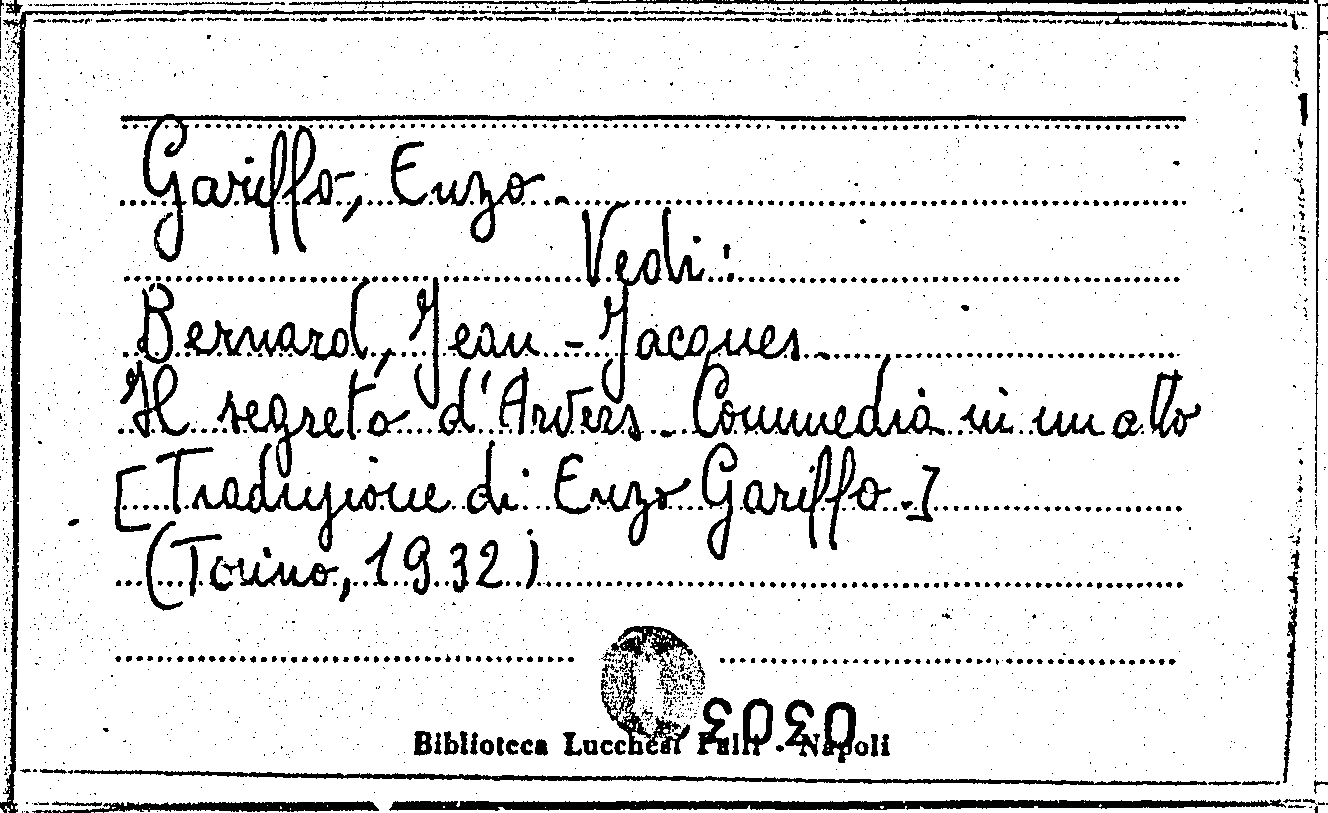 Gariffo, Enzo.
Vedi:
Bernard, Jean-Jacques.
Il segreto d'Arvers. Commedia in un atto
[Traduzione di Enzo Gariffo.]
(Torino, 1932)
Biblioteca Lucchesi Palli - Napoli